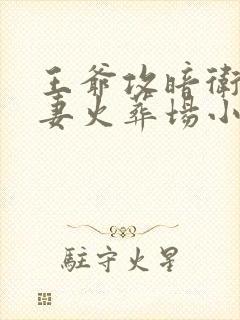 王爺攻暗衛
妻火葬場小
駐守火星